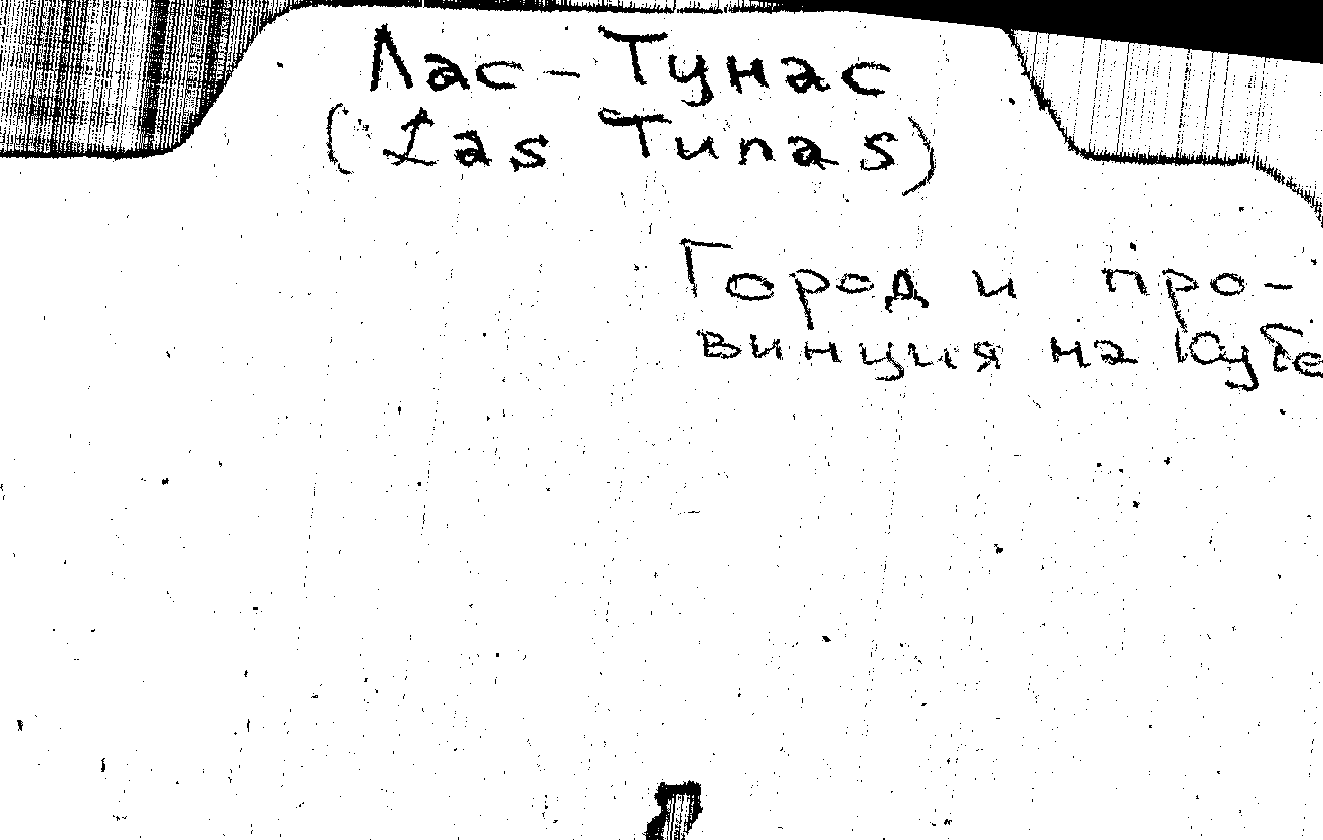 Лас-Тунас
(Las Tunas)
Город и про-
винция на Кубе